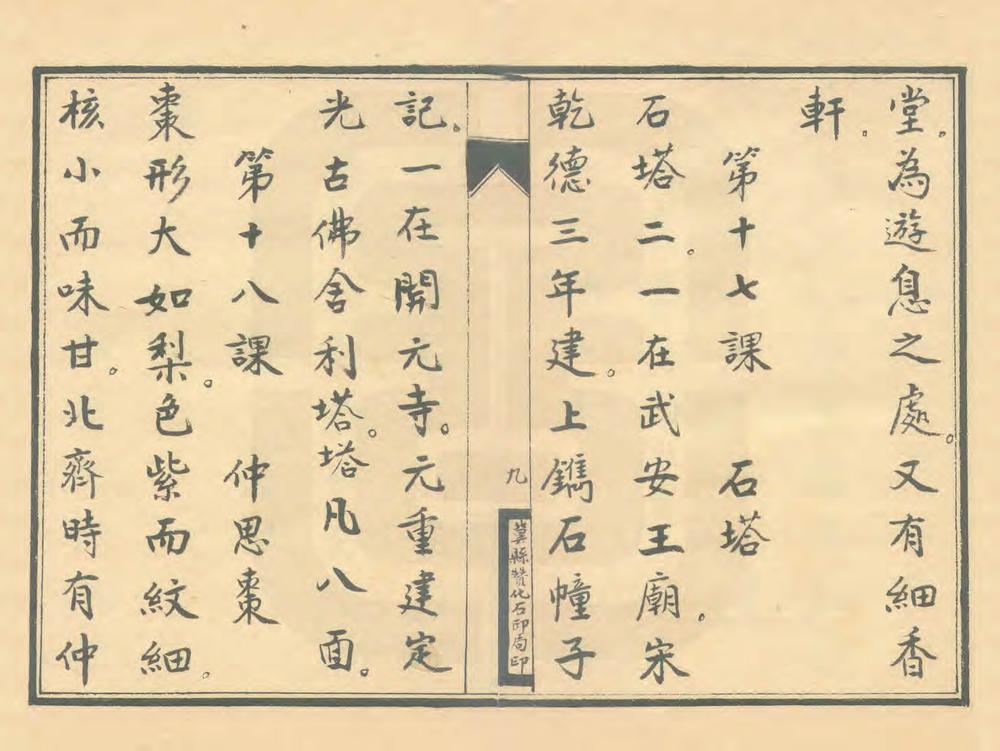 堂。為遊息之處。又有細香
軒。
第十七課　石塔
石塔二。一在武安王廟。宋
乾德三年建。上鐫石幢子
九
冀縣贊化石印局印
記。一在開元寺。元重建定
光古佛舍利塔。塔凡八面。
第十八課　仲思棗
棗形大如梨。色紫而紋細。
核小而味甘。北齊時有仲